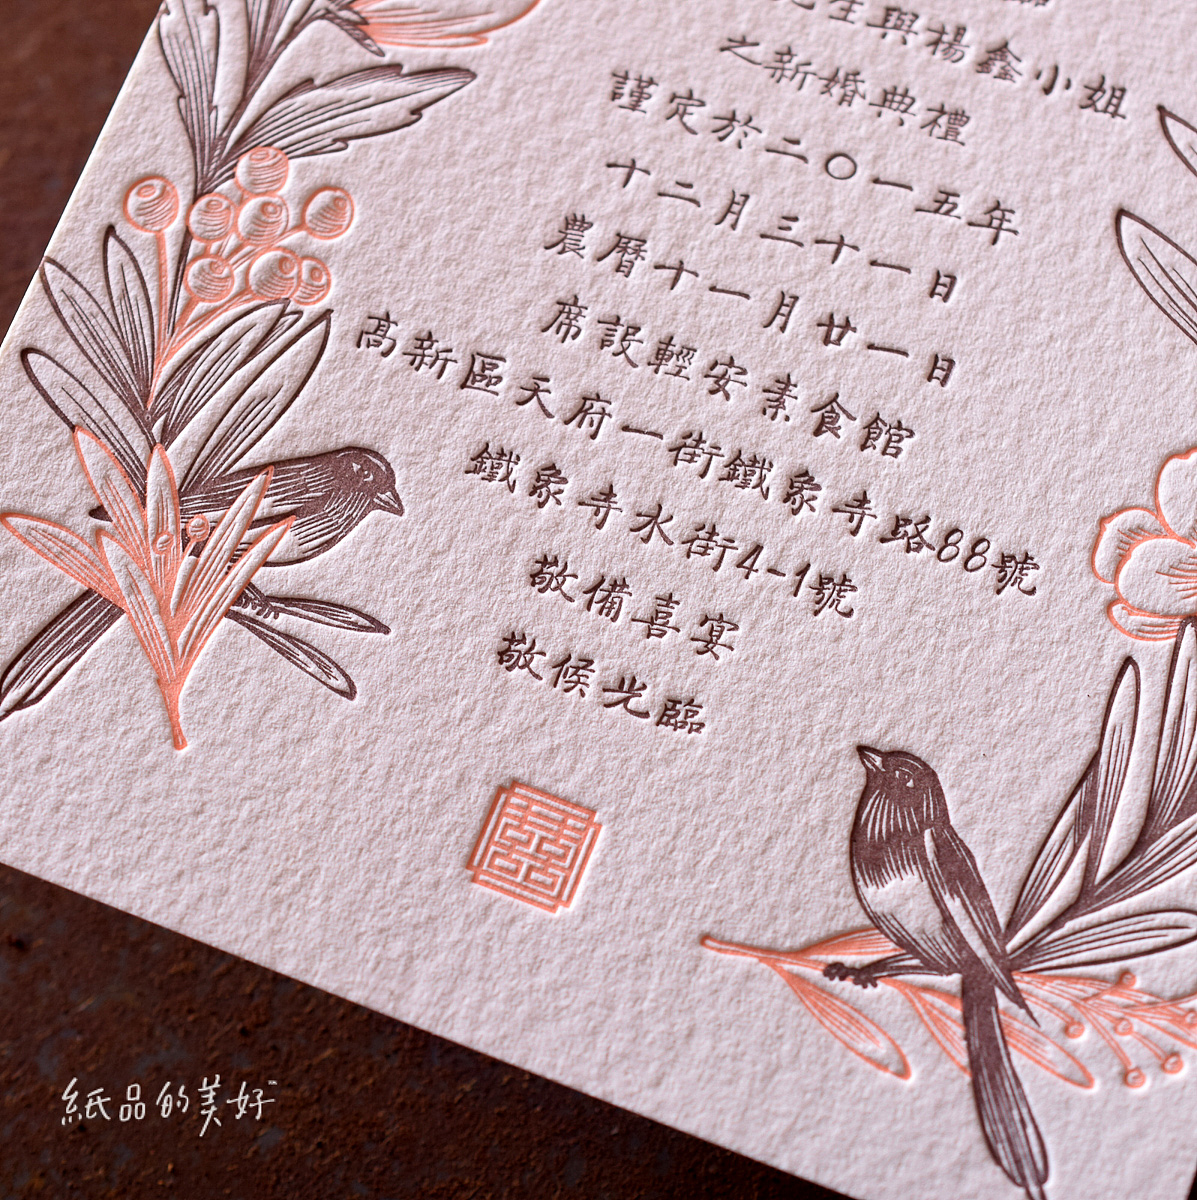 生與楊鑫小姐
之新婚典禮
謹定於二〇一五年
十二月三十一日
農曆十一月廿一日
席設輕安素食館
高新區天府一街鐵象寺路88號
鐵象寺水街4-1號
敬備喜宴
敬候光臨
囍
紙品的美好